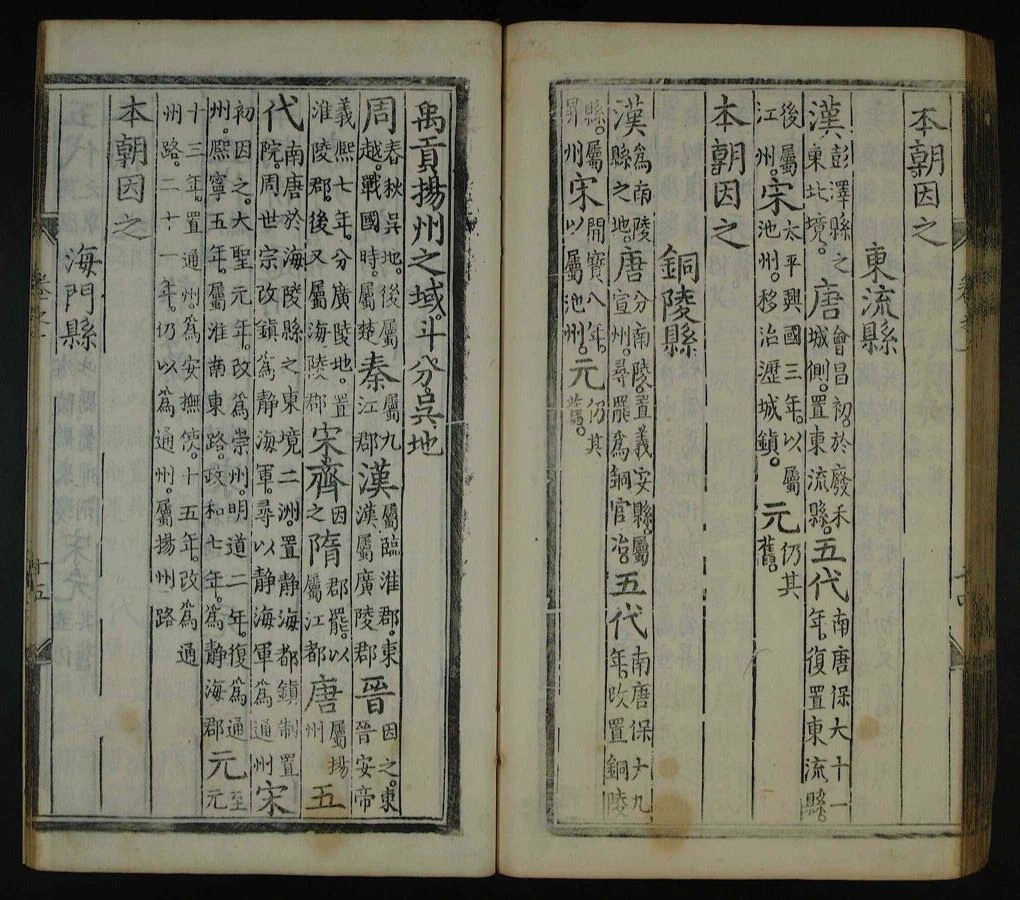 本朝因之
東流縣
漢彭澤縣之東北境。唐會昌初。於廢禾城側。置東流縣。五代南唐保大十一年。復置東流縣。
後屬江州。宋太平興國三年。以屬池州。移治瀝城鎮。元仍其舊。
本朝因之
銅陵縣
漢爲南陵縣之地。唐分南陵。置義安縣。屬宣州。尋罷爲銅官冶。五代南唐保十九年。改置銅陵
縣。屬昇州。宋開寶八年。以屬池州。元仍其舊。
禹貢揚州之域。斗分吳地
周春秋吳地。後屬越。戰國時。屬楚秦屬九江郡漢屬臨淮郡。東漢屬廣陵郡晉因之。東晉安帝
義熙七年。分廣陵地。置淮陵郡。後又屬海陵郡宋齊因之隋郡罷。以屬江都唐屬揚州五
代南唐於海陵縣之東境二洲。置靜海都鎮制置院。周世宗改鎮爲靜海軍。尋以靜海軍爲通州宋
初因之。大聖元年。改爲崇州。明道二年。復爲通州。熈寧五年。屬淮南東路。政和七年。爲靜海郡元至元
十三年。置通州。爲安撫使。十五年。改爲通州路。二十一年。仍以爲通州。屬揚州路
本朝因之
海門縣
十五